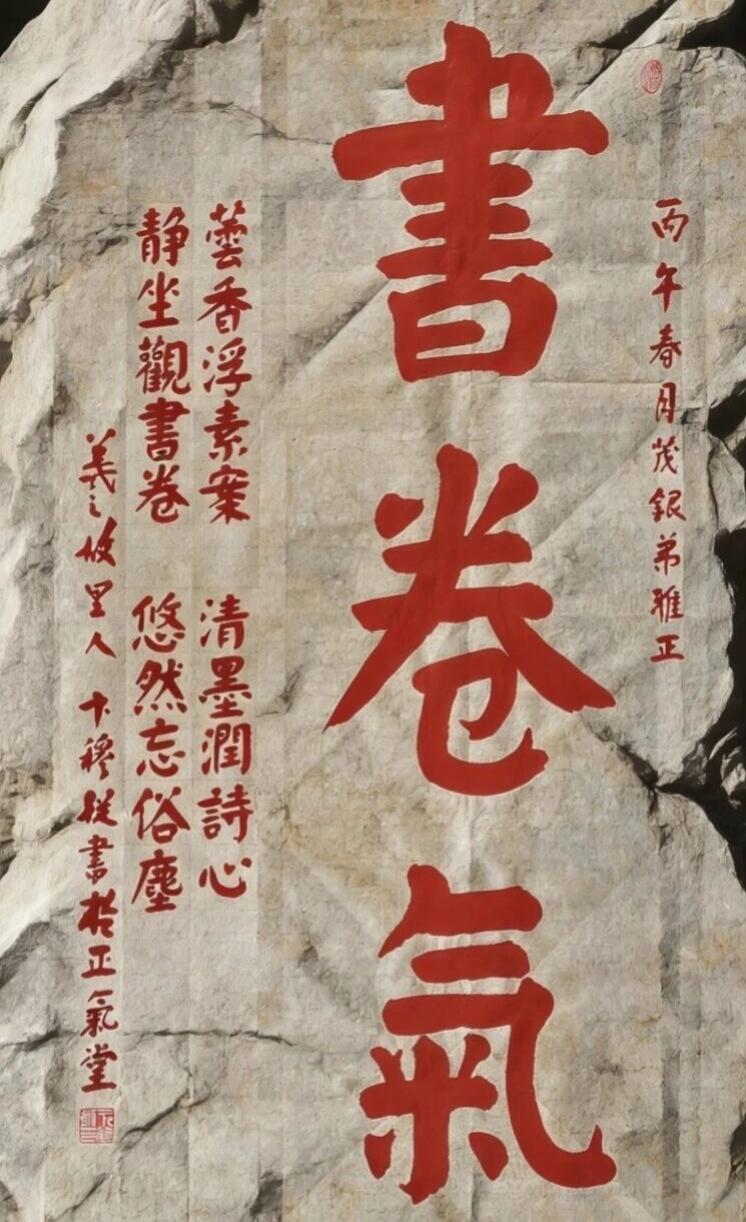 丙午春月茂銀弟雅正
書卷氣
蕓香浮素案 清墨潤詩心
靜坐觀書卷 悠然忘俗塵
羲之故里人 卞穆從書於正氣堂